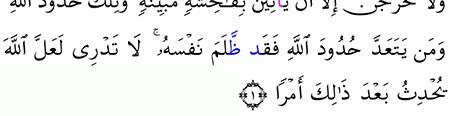 ولا يخرجن إلا أن يأتين بفاحشة مبينة وتلك حدود الله
وَمَن يَتَعَدَّ حُدُودَ اللَّهِ فَقَد ظَّلَمَ نَفْسَهُۥ ۚ لَا تَدْرِى لَعَلَّ اللَّهَ
يُحْدِثُ بَعْدَ ذَٰلِكَ أَمْرًا ۝١